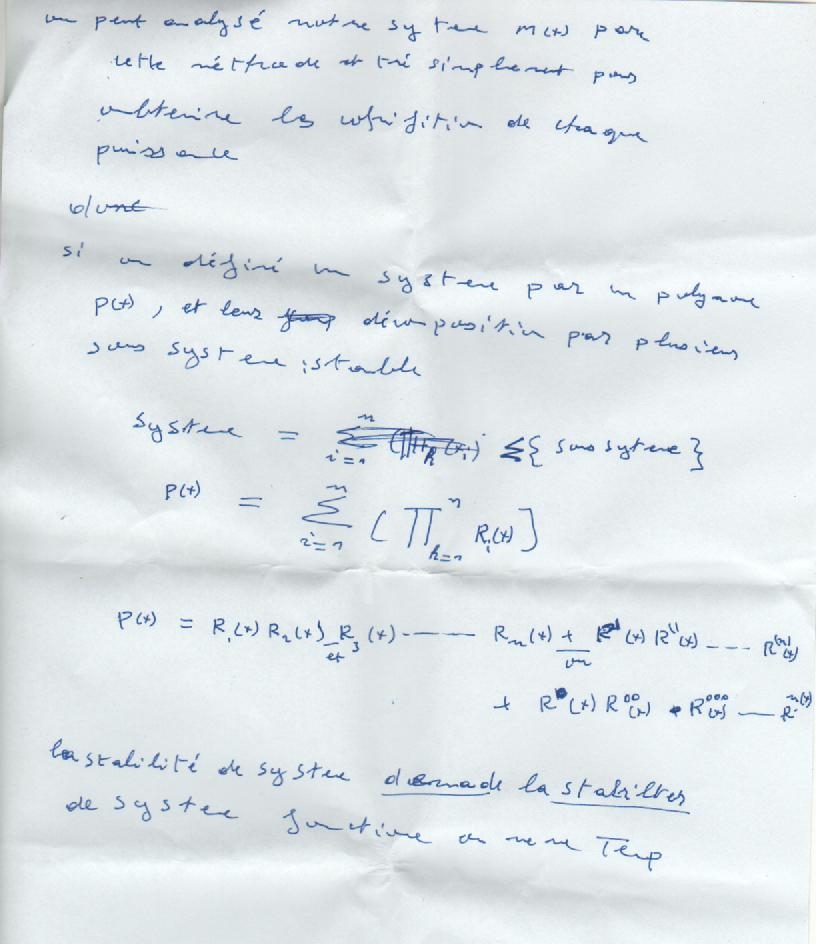 on peut analysé notre syteme M(x) par
cette méthode et tré simplement pas
oubtenire les cohifitien de chaque
puissance
d'une
si on définé un systeme par un polynome
P(x), et leur décomposition par plusieurs
sous systeme istable
systeme = Σ{ sous syteme }
P(x) = Σ_{i=1}^{n} ( ∏_{k=1}^{n} R_i(x) )
P(x) = R_1(x) R_2(x) et R_3(x) ------ R_n(x) + ou R'(x) R''(x) --- R^{(n)}(x)
+ R°(x) R°°(x) • R°°°(x) — R^{n(x)}
la stabilité de systeme demade la stabilter
de systeme fonctione en meme Temp